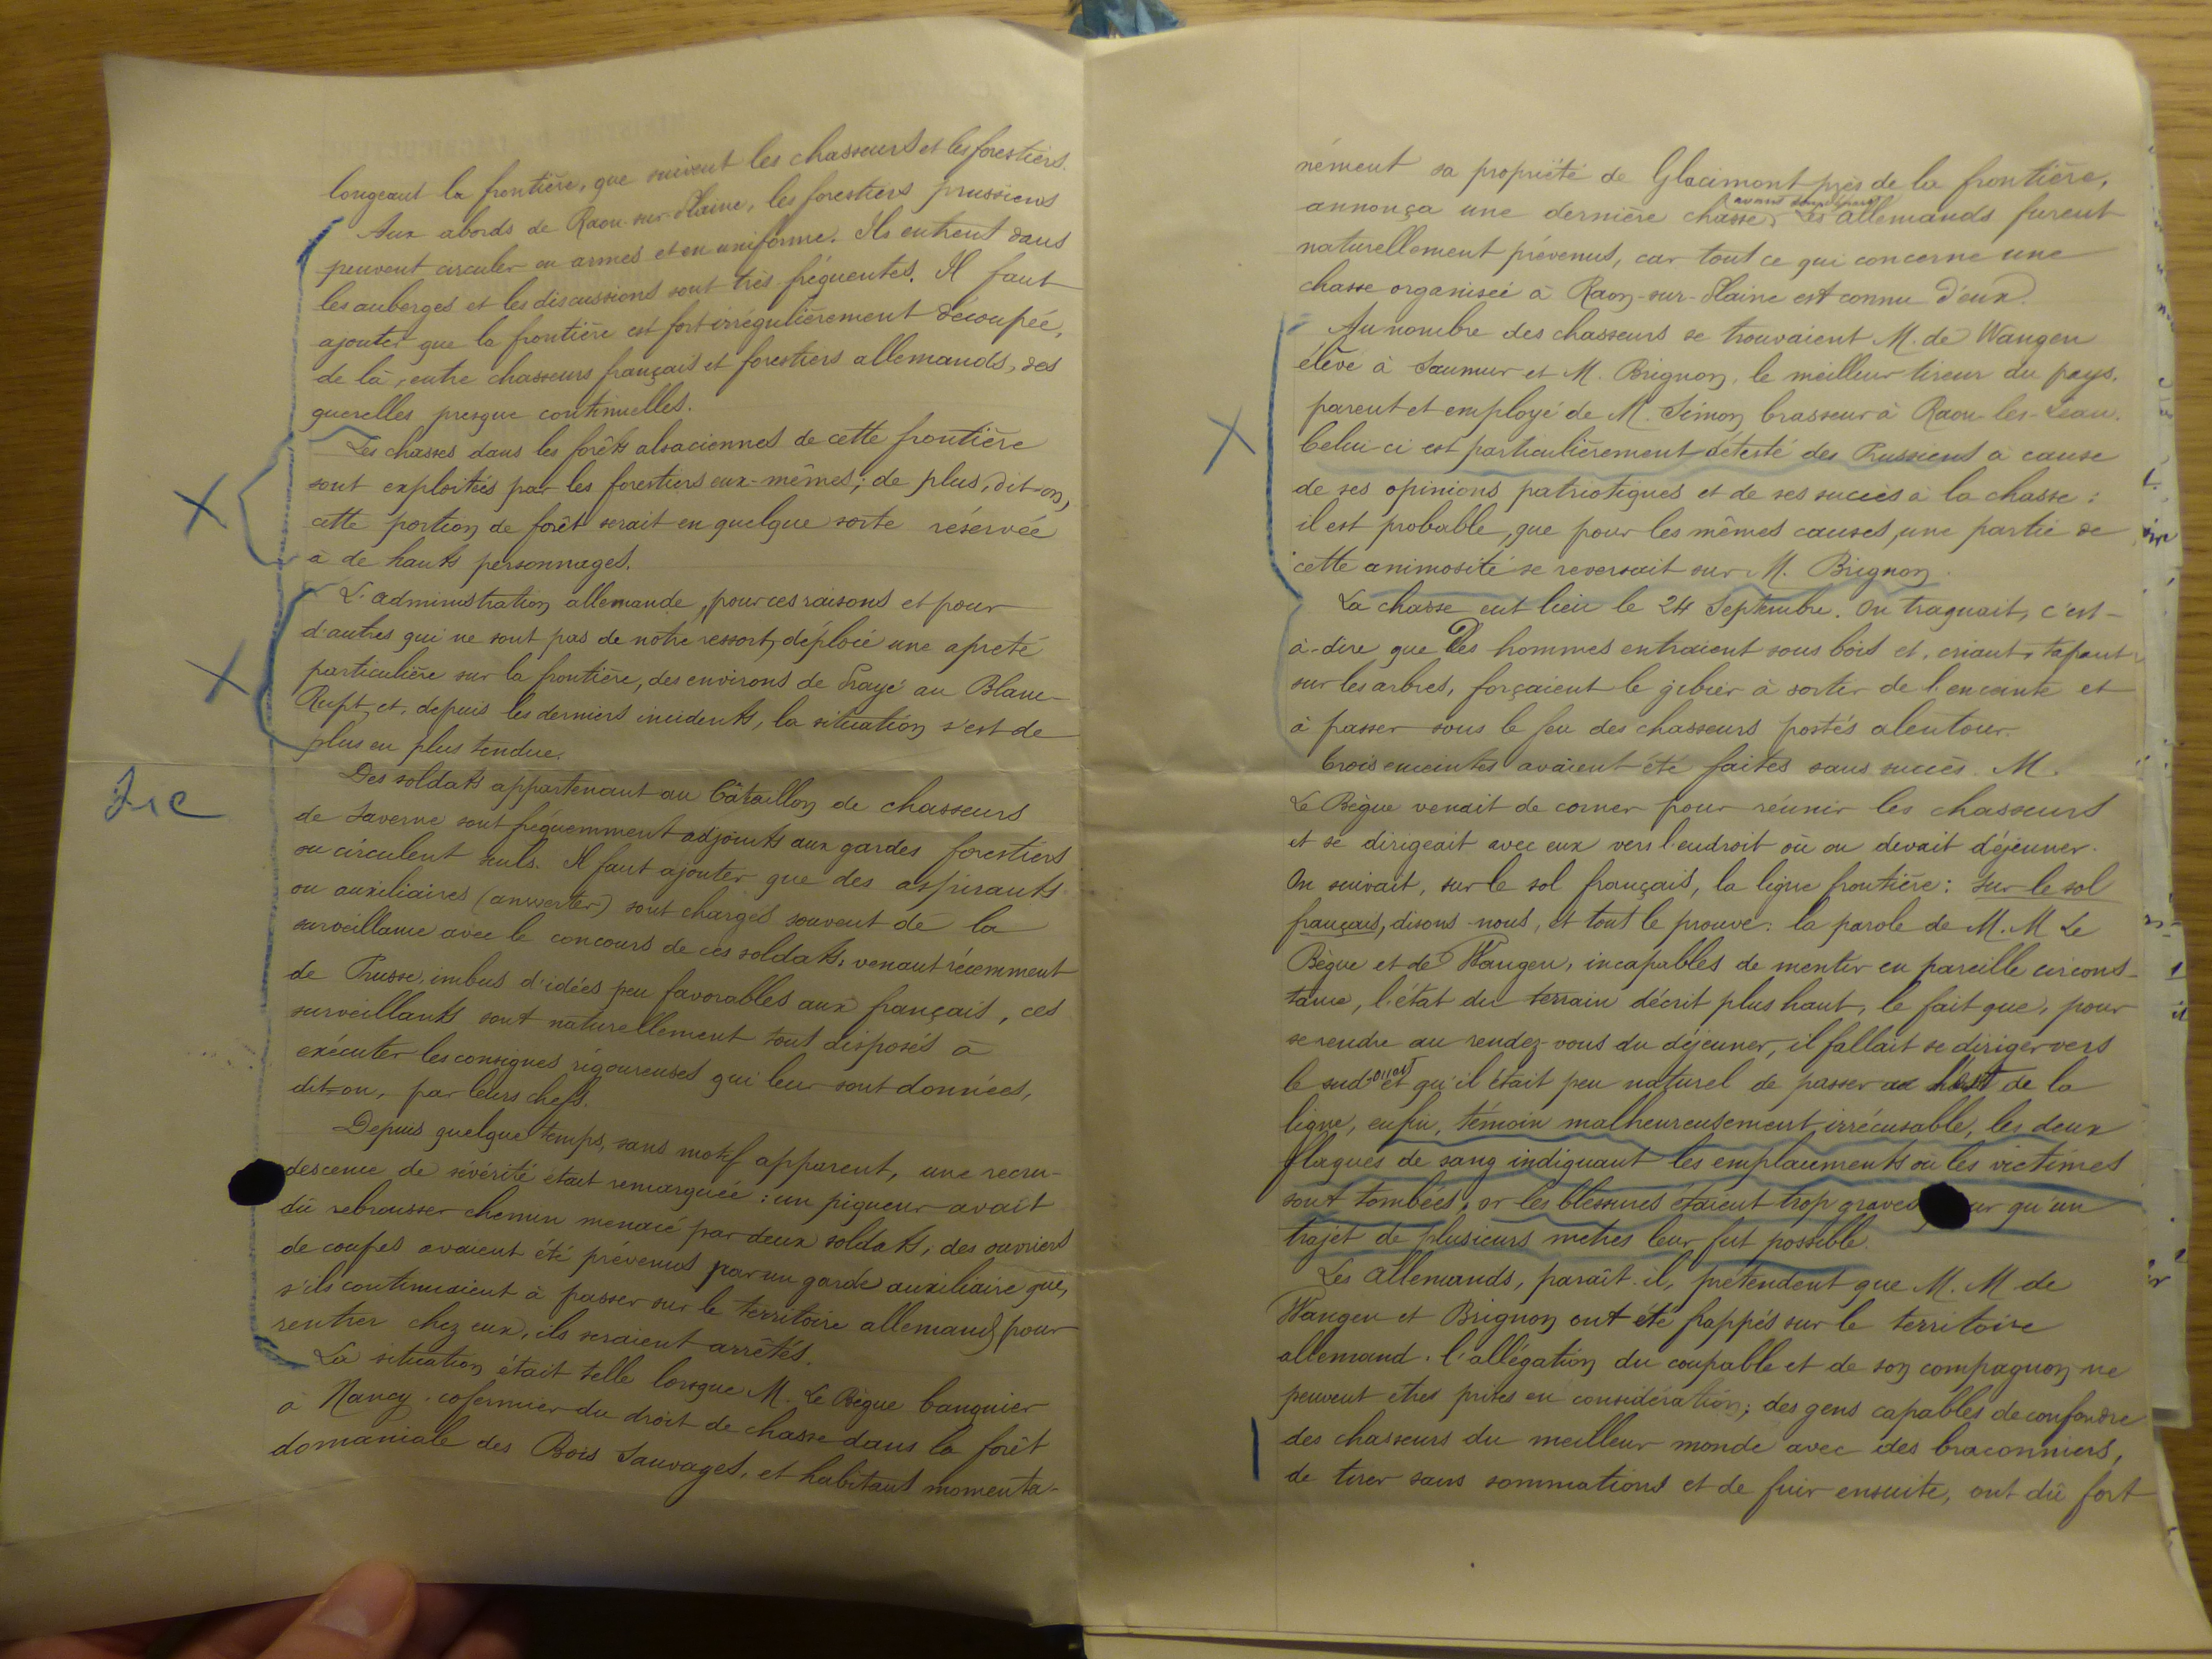 longeant la frontière, que suivent les chasseurs et les forestiers.
Aux abords de Raon-sur-Plaine, les forestiers prussiens
peuvent circuler en armes et en uniforme. Ils entrent dans
les auberges et les discussions sont très fréquentes. Il faut
ajouter que la frontière est fort irrégulièrement découpée,
de là, entre chasseurs français et forestiers allemands, des
querelles presque continuelles.
Les chasses dans les forêts alsaciennes de cette frontière
sont exploitées par les forestiers eux-mêmes; de plus, dit-on,
cette portion de forêt serait en quelque sorte réservée
à de hauts personnages.
L'administration allemande, pour ces raisons et pour
d'autres qui ne sont pas de notre ressort, déploie une apreté
particulière sur la frontière, des environs de Prayé au Blanc-
Rupt, et, depuis les derniers incidents, la situation s'est de
plus en plus tendue.
Des soldats appartenant au bataillon de chasseurs
de Saverne sont fréquemment adjoints aux gardes forestiers
ou circulent seuls. Il faut ajouter que des aspirants
ou auxiliaires (anwerter) sont chargés souvent de la
surveillance avec le concours de ces soldats; venant récemment
de Prusse, imbus d'idées peu favorables aux français, ces
surveillants sont naturellement tout disposés à
exécuter les consignes rigoureuses qui leur sont données,
dit-on, par leurs chefs.
Depuis quelque temps, sans motif apparent, une recru-
descence de sévérité était remarquée: un piqueur avait
dû rebrousser chemin menacé par deux soldats, des ouvriers
de coupes avaient été prévenus par un garde auxiliaire que,
s'ils continuaient à passer sur le territoire allemand pour
rentrer chez eux, ils seraient arrêtés.
La situation était telle lorsque M. Le Bègue banquier
à Nancy, cofermier du droit de chasse dans la forêt
domaniale des Bois Sauvages, et habitant momenta-
nément sa propriété de Glacimont près de la frontière,
annonça une dernière chasse, Les allemands furent
naturellement prévenus, car tout ce qui concerne une
chasse organisée à Raon-sur-Plaine est connu d'eux.
Au nombre des chasseurs se trouvaient M. de Wangen
élève à Saumur et M. Brignon, le meilleur tireur du pays,
parent et employé de M. Simon brasseur à Raon-les-Leau.
Celui-ci est particulièrement détesté des Prussiens à cause
de ses opinions patriotiques et de ses succès à la chasse:
il est probable, que pour les mêmes causes, une partie de
cette animosité se reversait sur M. Brignon.
La chasse eut lieu le 24 Septembre. On traquait, c'est-
à-dire que des hommes entraient sous bois et, criant, tapant
sur les arbres, forçaient le gibier à sortir de l'enceinte et
à passer sous le feu des chasseurs postés alentour.
Trois enceintes avaient été faites sans succès. M.
Le Bègue venait de corner pour réunir les chasseurs
et se dirigeait avec eux vers l'endroit où on devait déjeuner.
On suivait, sur le sol français, la ligne frontière: sur le sol
français, disons-nous, et tout le prouve: la parole de M.M Le
Bègue et de Wangen, incapables de mentir en pareille circons-
tance, l'état du terrain décrit plus haut, le fait que, pour
se rendre au rendez-vous du déjeuner, il fallait se diriger vers
le sud-ouest et qu'il était peu naturel de passer de la
ligne, enfin, témoin malheureusement irrécusable, les deux
flaques de sang indiquant les emplacements où les victimes
sont tombées, or les blessures étaient trop graves pour qu'un
trajet de plusieurs mètres leur fut possible.
Les allemands, paraît-il, prétendent que M.M de
Wangen et Brignon ont été frappés sur le territoire
allemand. l'allégation du coupable et de son compagnon ne
peuvent êtres prises en considération; des gens capables de confondre
des chasseurs du meilleur monde avec des braconniers,
de tirer sans sommations et de fuir ensuite, ont dû fort